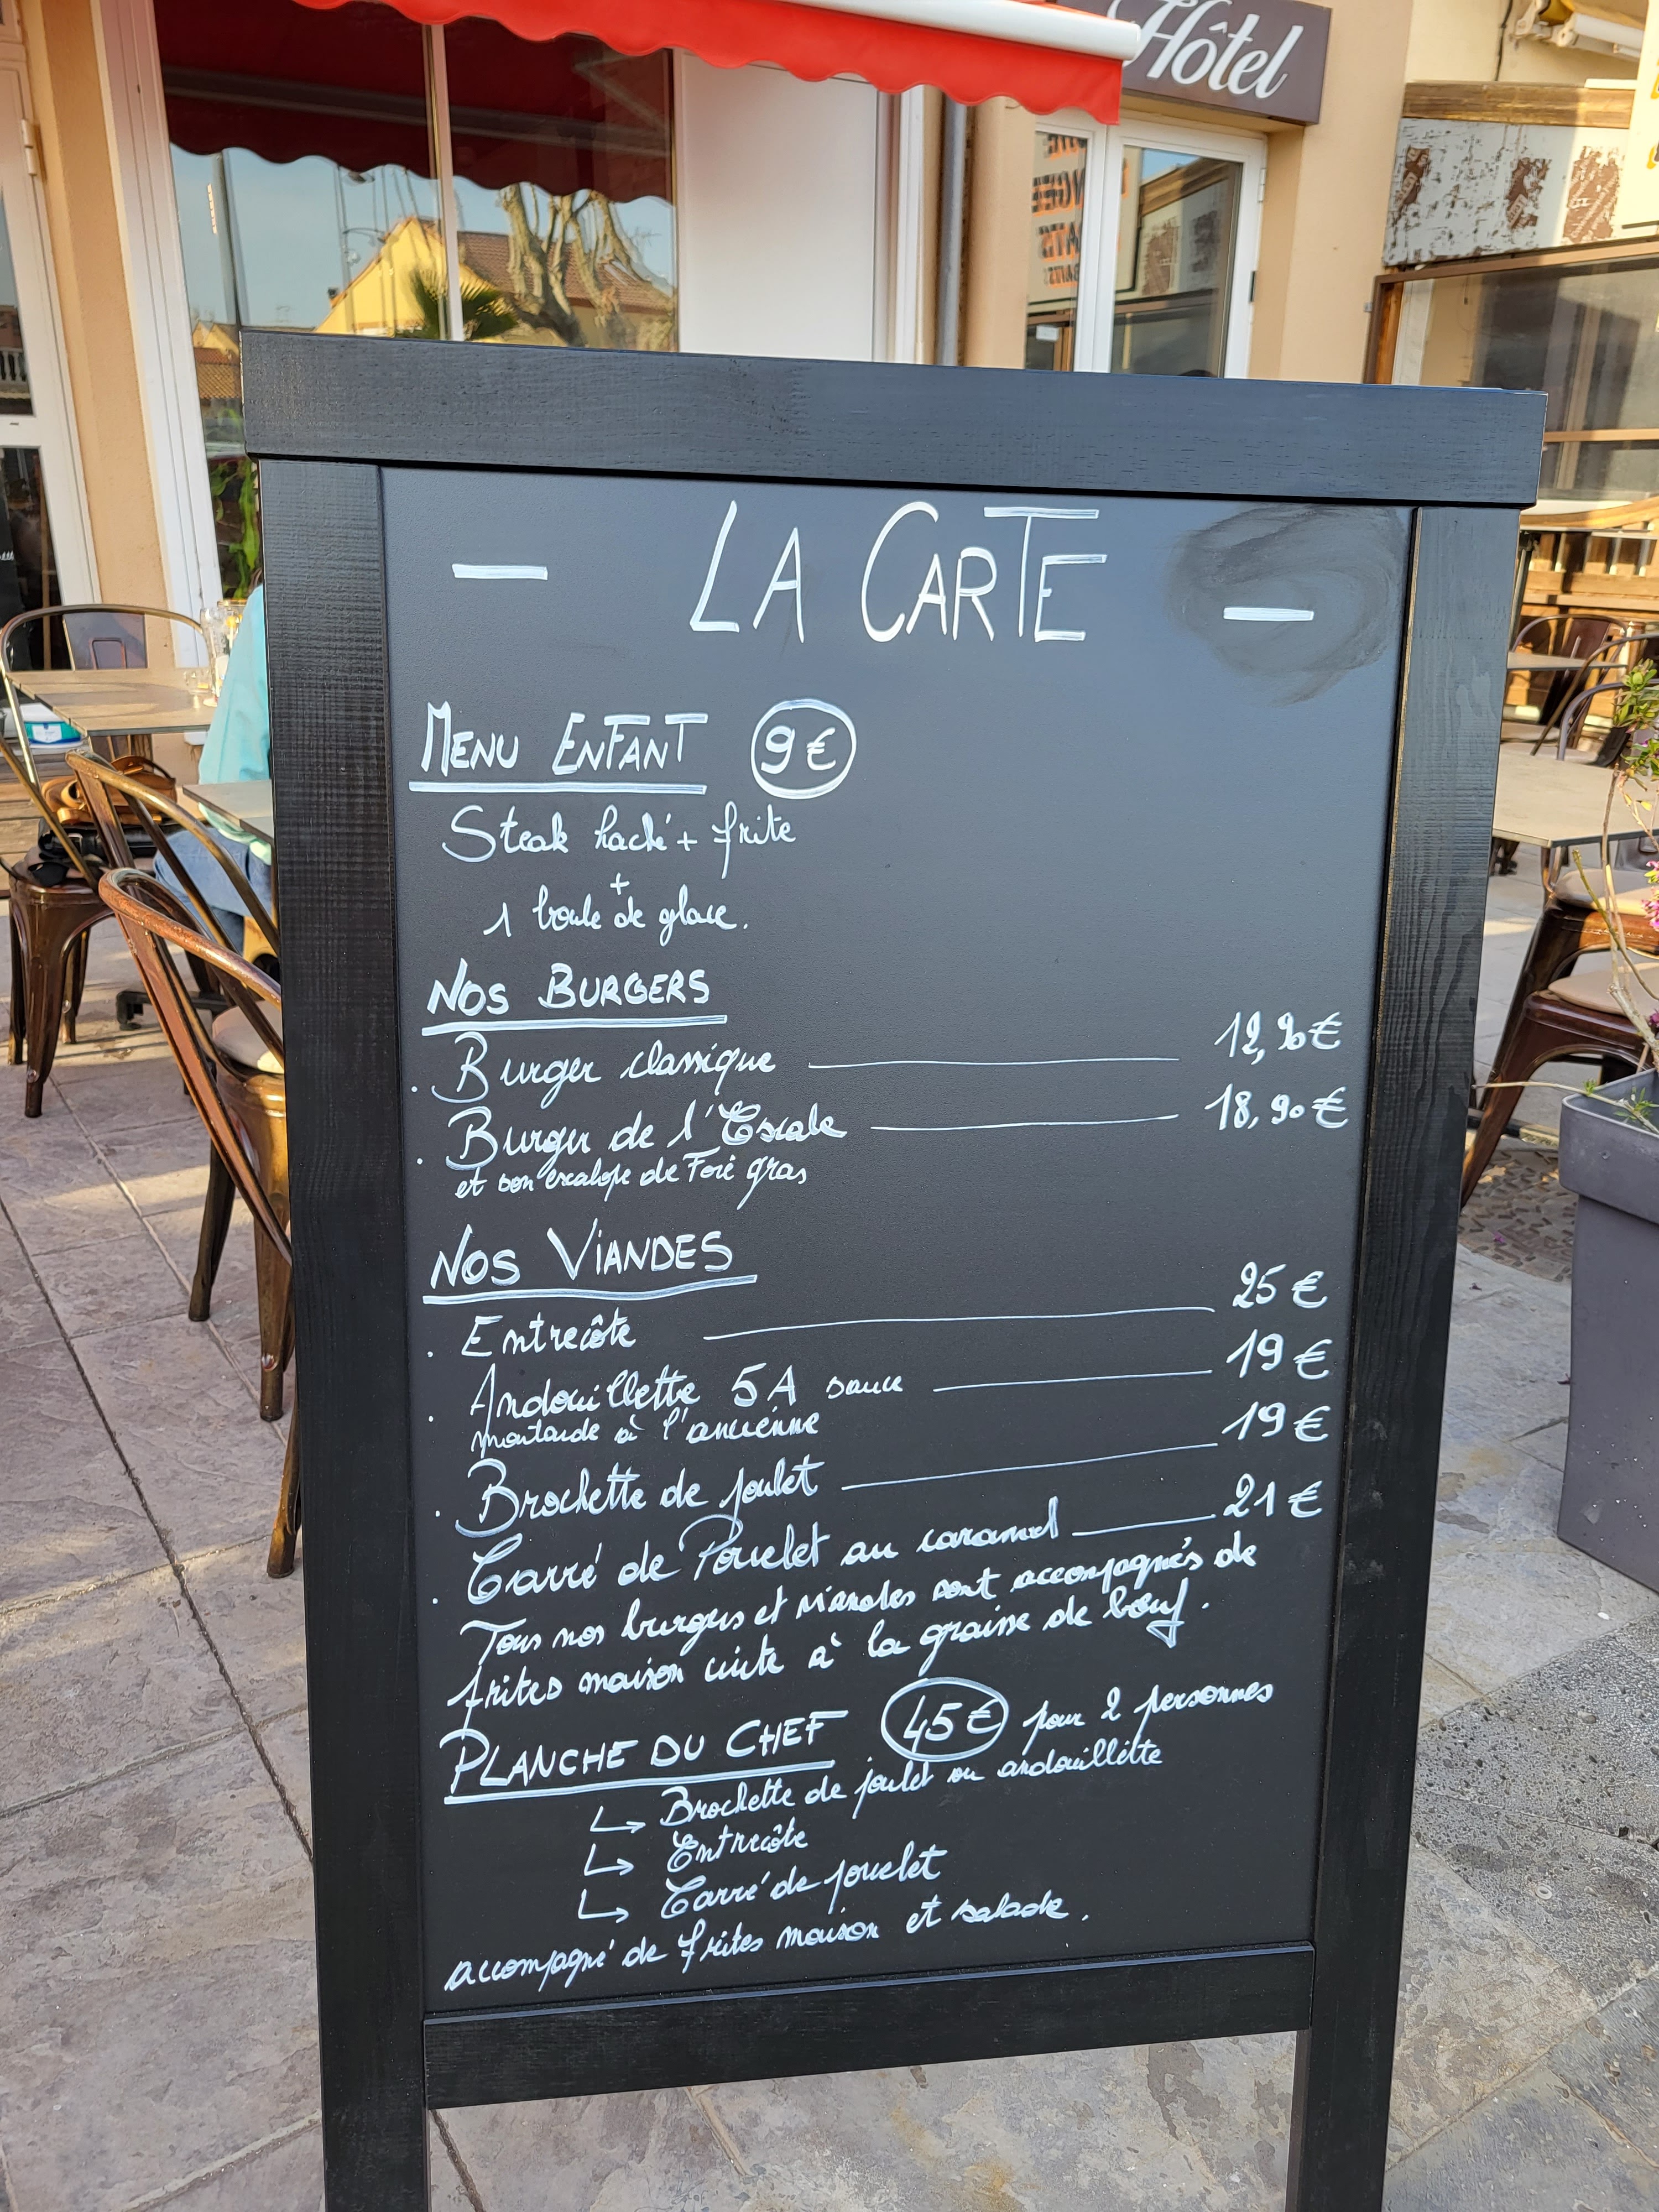 Hôtel
LA CARTE
MENU ENFANT 9€
Steak haché + frite
+
1 boule de glace.
NOS BURGERS
. Burger classique 12,90€
. Burger de l'Escale 18,90€
et son escalope de Foie gras
NOS VIANDES
. Entrecôte 25€
. Andouillette 5A sauce 19€
moutarde à l'ancienne
. Brochette de poulet 19€
. Carré de Porcelet au caramel 21€
Tous nos burgers et viandes sont accompagnés de
frites maison cuite à la graisse de bœuf.
PLANCHE DU CHEF 45€ pour 2 personnes
↳ Brochette de poulet ou andouillette
↳ Entrecôte
↳ Carré de porcelet
accompagné de frites maison et salade.